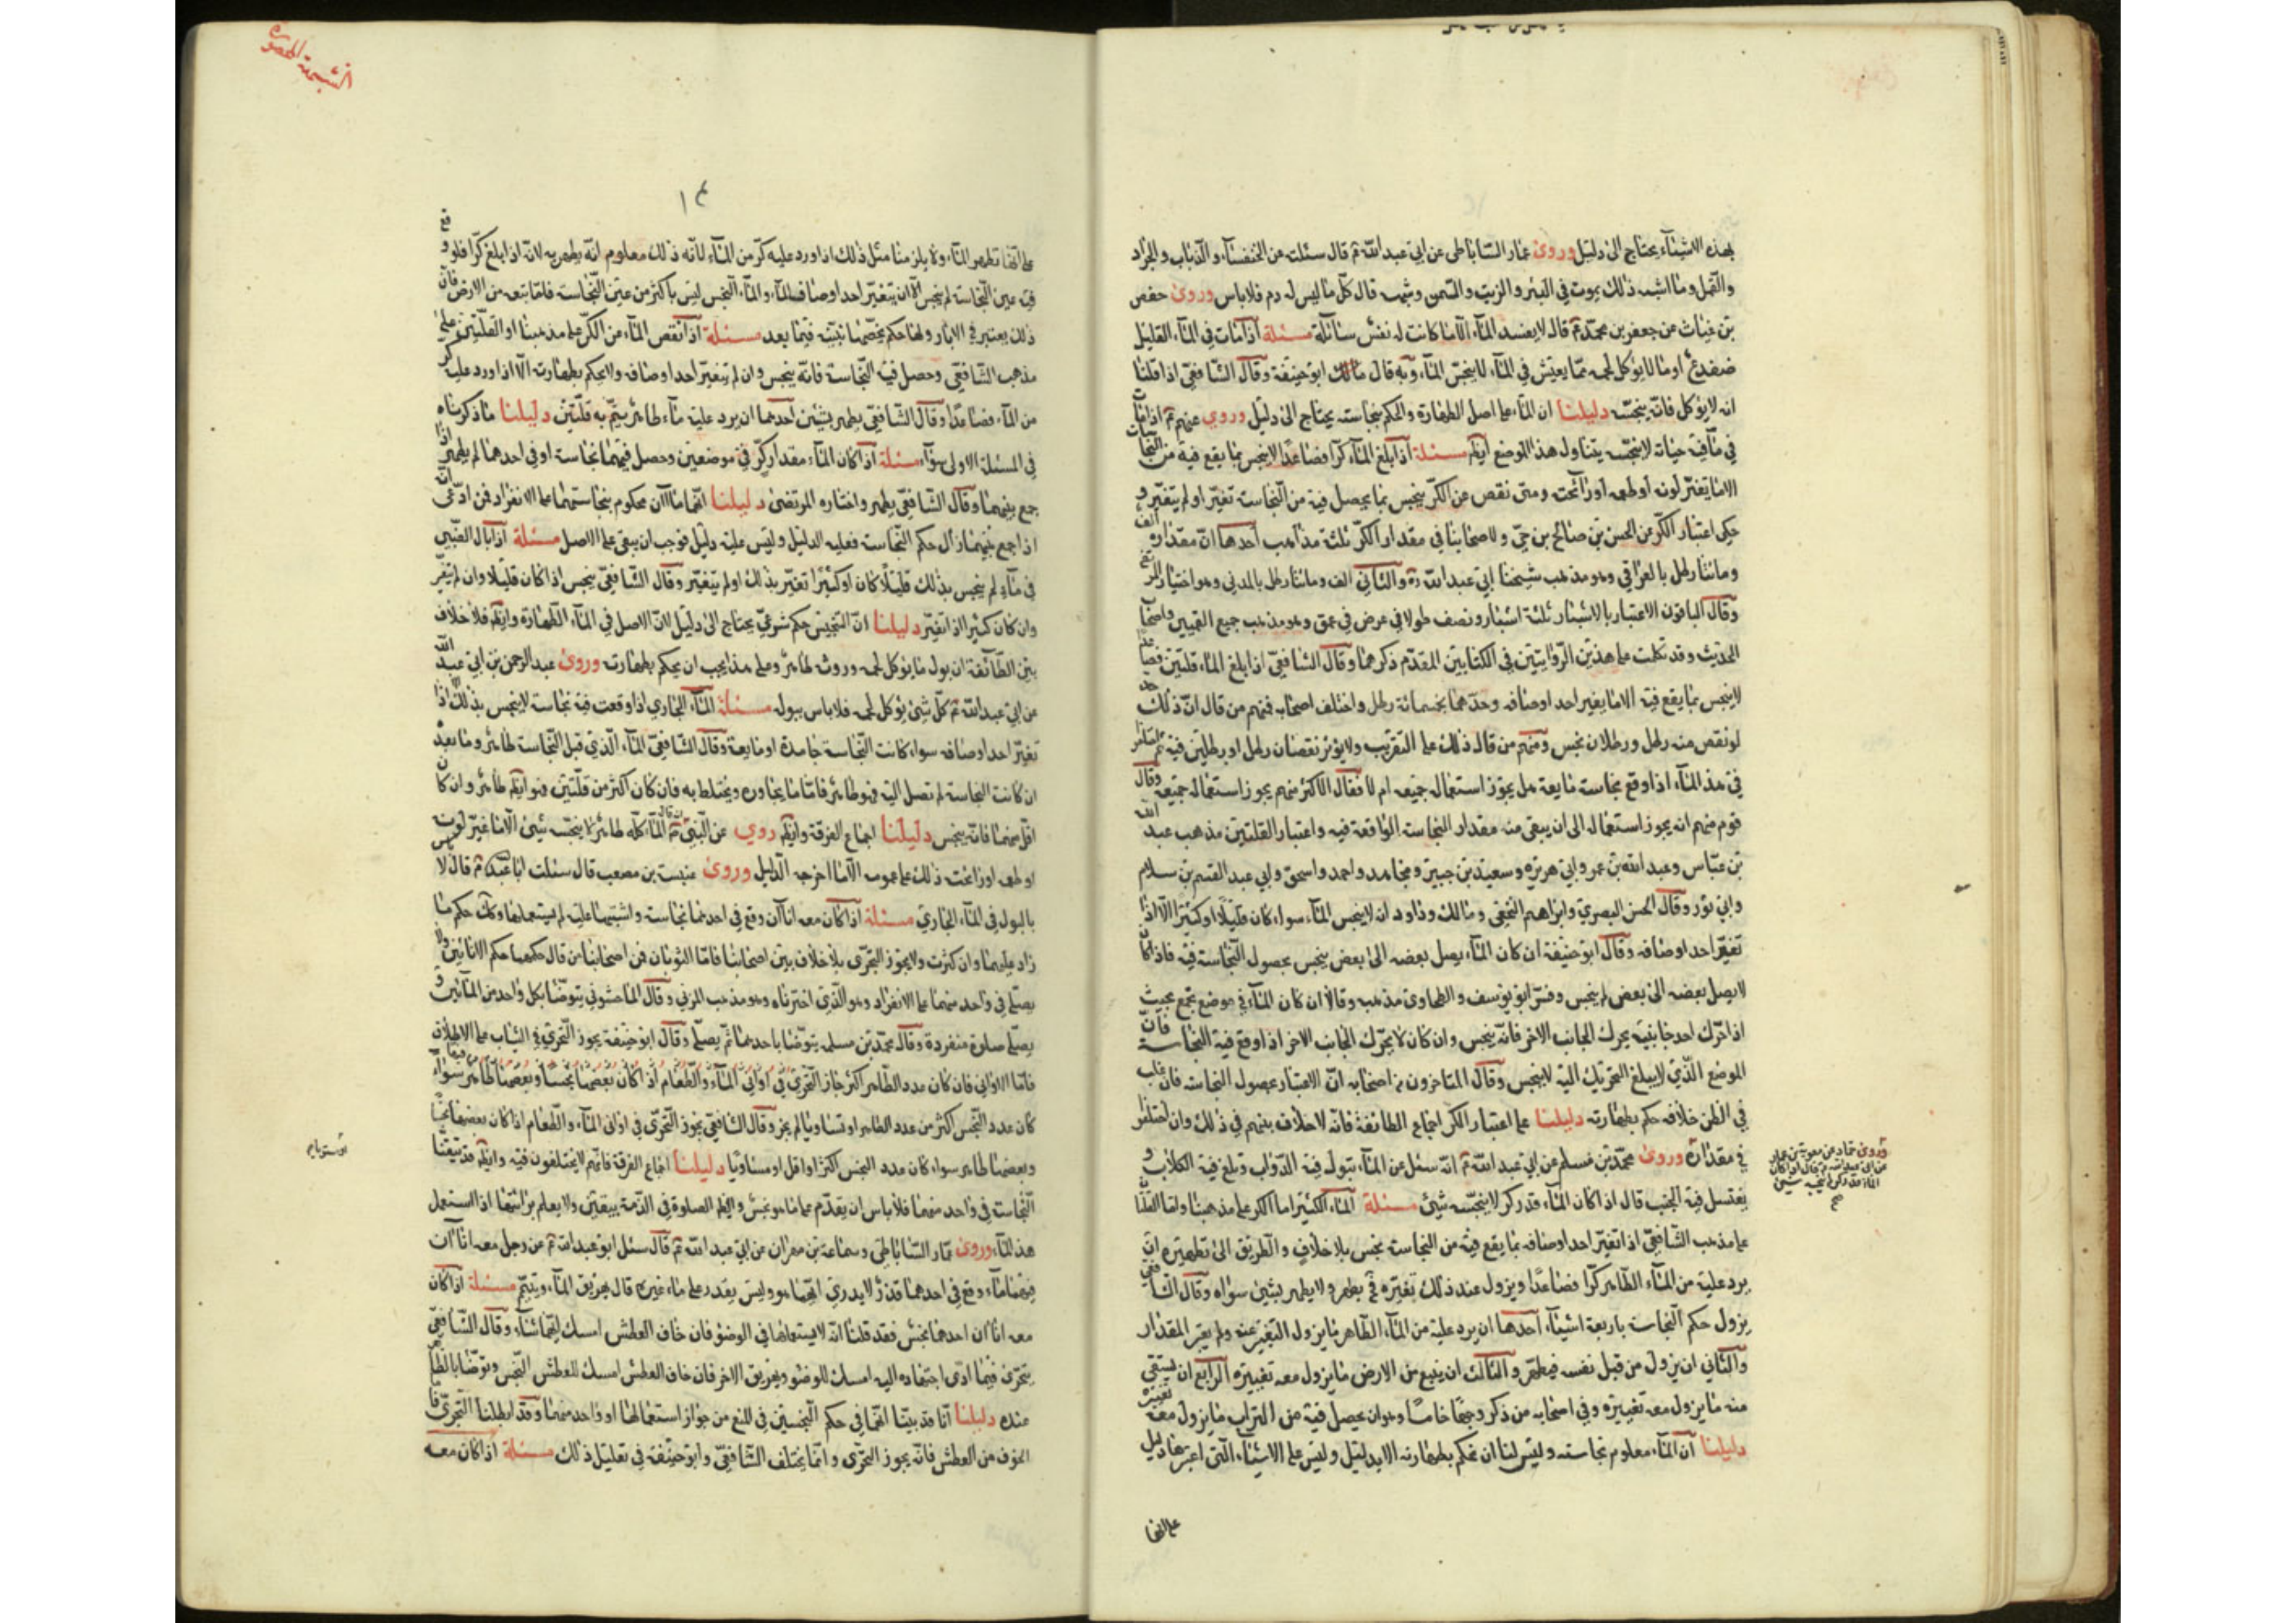 بهذه الاشياء يحتاج الى دليل وروى عمار الساباطى عن ابى عبد الله ع قال سئلت عن الخنفساء والذباب والجراد
والنمل وما اشبه ذلك يموت فى البئر والزيت والسمن وشبهه قال كل ما ليس له دم فلا باس وروى حفص
بن غياث عن جعفر بن محمد ع قال لا يفسد الماء الا ما كانت له نفس سائلة مسئلة اذا مات فى الماء القليل
ضفدع او ما لا يؤكل لحمه مما يعيش فى الماء لا ينجس الماء وبه قال ابو حنيفة وقال الشافعى اذا قلنا
انه لا يؤكل فانه ينجسه دليلنا ان الماء على اصل الطهارة والحكم بنجاسته يحتاج الى دليل وروى عنهم ع اذا مات
فى ما فيه حياته لا ينجسه يتناول هذا الموضع ايضا مسئلة اذا بلغ الماء كرا فصاعدا لا ينجس بما يقع فيه من النجاسات
الا ما يغير لونه او طعمه او رائحته ومتى نقص عن الكر ينجس بما يحصل فيه من النجاسة تغير او لم يتغير و
حكى اعتبار الكر عن الحسن بن صالح بن حى ولاصحابنا فى مقدار الكر ثلثة مذاهب احدها ان مقداره الف
ومائتا رطل بالعراقى وهو مذهب شيخنا ابى عبد الله ره والثانى الف ومائتا رطل بالمدنى وهو اختيار المرتضى
وقال الباقون الاعتبار بالاشبار ثلثة اشبار ونصف طولا فى عرض فى عمق وهو مذهب جميع القميين واصحاب
الحديث وقد تكلمت على هذين الروايتين فى الكتابين المقدم ذكرهما وقال الشافعى اذا بلغ الماء قلتين فصاعدا
لا ينجس بما يقع فيه الا ما يغير احد اوصافه وحدهما بخمسمائة رطل واختلف اصحابه فمنهم من قال ان ذلك حد
لو نقص منه رطل ورطلان نجس ومنهم من قال ذلك على التقريب ولا يؤثر نقصان رطل او رطلين فيه ثم اختلفوا
فى هذا الماء اذا وقع نجاسة مايعة هل يجوز استعمال جميعه ام لا فقال الاكثر منهم يجوز استعمال جميعه وقال
قوم منهم انه يجوز استعماله الى ان يبقى منه مقدار النجاسة الواقعة فيه واعتبار القلتين مذهب عبد الله
بن عباس وعبد الله بن عمر وابى هريرة وسعيد بن جبير ومجاهد واحمد واسحق وابى عبد القسم بن سلام
وابى ثور وقال الحسن البصرى وابراهيم النخعى ومالك وداود انه لا ينجس الماء سواء كان قليلا او كثيرا الا اذا
تغير احد اوصافه وقال ابو حنيفة ان كان الماء يصل بعضه الى بعض ينجس بحصول النجاسة فيه فاذا كان
لا يصل بعضه الى بعض لم ينجس وفسر ابو يوسف والطحاوى مذهبه وقالا ان كان الماء فى موضع مجتمع بحيث
اذا حرك احد جانبيه يحرك الجانب الاخر فانه ينجس وان كان لا يحرك الجانب الاخر اذا وقع فيه النجاسة فان
الموضع الذى لا يبلغ التحريك اليه لا ينجس وقال المتاخرون من اصحابه ان الاعتبار بحصول النجاسة فان غلب
فى الظن خلافه حكم بطهارته دليلنا على اعتبار الكر اجماع الطائفة فانه لا خلاف بينهم فى ذلك وان اختلفوا
فى مقداره وروى محمد بن مسلم عن ابى عبد الله ع انه سئل عن الماء تبول فيه الدواب وتلغ فيه الكلاب و
يغتسل فيه الجنب قال اذا كان الماء قدر كر لا ينجسه شئ مسئلة الماء الكثير اما الكر على مذهبنا واما القلتان
على مذهب الشافعى اذا تغير احد اوصافه بما يقع فيه من النجاسة نجس بلا خلاف والطريق الى تطهيره ان
يرد عليه من الماء الطاهر كرا فصاعدا ويزول عند ذلك تغيره فح يطهر ولا يطهر بشئ سواه وقال الشافعى
يزول حكم النجاسة باربعة اشياء احدها ان يرد عليه من الماء الطاهر ما يزول التغير عنه ولم يعتبر المقدار
والثانى ان يزول من قبل نفسه فيطهر والثالث ان ينبع من الارض ما يزول معه تغييره الرابع ان يستقى
منه ما يزول معه تغييره وفى اصحابه من ذكر وجها خامسا وهو ان يحصل فيه من التراب ما يزول معه تغييره
دليلنا ان الماء معلوم نجاسته وليس لنا ان نحكم بطهارته الا بدليل وليس على الاشياء التى اعتبرها دليل
على انها
وروى حماد عن معوية بن عمار
عن ابى عبد الله ع قال اذا كان
الماء قدر كر لم ينجسه شئ
صح
١٤
على انها تطهر الماء ولا يلزمنا مثل ذلك اذا ورد عليه كر من الماء لانه ذلك معلوم انه يطهر به لانه اذا بلغ كرا فلو وقع
فيه عين النجاسة لم ينجس الا ان يتغير احد اوصاف الماء والماء النجس ليس باكثر من عين النجاسة فاما نبعه من الارض فان
ذلك يعتبر فى الابار ولها حكم يخصها نبينه فيما بعد مسئلة اذا نقص الماء عن الكر على مذهبنا او القلتين على
مذهب الشافعى وحصل فيه النجاسة فانه ينجس وان لم يتغير احد اوصافه ولا يحكم بطهارته الا اذا ورد عليه كر
من الماء فصاعدا وقال الشافعى يطهر بشيئين احدهما ان يرد عليه ماء طاهر يتم به قلتين دليلنا ما ذكرناه
فى المسئلة الاولى سواء مسئلة اذا كان الماء مقدار كر فى موضعين وحصل فيهما نجاسة او فى احدهما لم يطهر اذا
جمع بينهما وقال الشافعى يطهر واختاره المرتضى دليلنا انهما ماآن محكوم بنجاستهما على الانفراد فمن ادعى انه
اذا جمع بينهما زال حكم النجاسة فعليه الدليل وليس عليه دليل فوجب ان يبقى على الاصل مسئلة اذا بال الظبى
فى ماء لم ينجس بذلك قليلا كان او كثيرا تغير بذلك او لم يتغير وقال الشافعى ينجس اذا كان قليلا وان لم يتغير
وان كان كثيرا اذا تغير دليلنا ان التنجيس حكم شرعى يحتاج الى دليل لان الاصل فى الماء الطهارة وايضا فلا خلاف
بين الطائفة ان بول ما يؤكل لحمه وروثه طاهر وعلى هذا يجب ان يحكم بطهارته وروى عبد الرحمن بن ابى عبد الله
عن ابى عبد الله ع كل شئ يؤكل لحمه فلا باس ببوله مسئلة الماء الجارى اذا وقعت فيه نجاسة لا ينجس بذلك الا اذا
تغير احد اوصافه سواء كانت النجاسة جامدة او مايعة وقال الشافعى الماء الذى قبل النجاسة طاهر وما بعد
ان كانت النجاسة لم تصل اليه فهو طاهر فاما ما يجاوره ويختلط به فان كان اكثر من قلتين فهو ايضا طاهر وان كان
اقل منهما فانه ينجس دليلنا اجماع الفرقة وايضا روى عن النبى ع انه قال الماء كله طاهر لا ينجسه شئ الا ما غير لونه
او طعمه او رائحته ذلك على عمومه الا ما اخرجه الدليل وروى عنبسة بن مصعب قال سئلت ابا عبد الله ع قال لا باس
بالبول فى الماء الجارى مسئلة اذا كان معه اناآن وقع فى احدهما نجاسة واشتبها عليه لم يستعملهما وكذلك حكم ما
زاد عليهما وان كثرت ولا يجوز التحرى بلا خلاف بين اصحابنا فاما الثوبان فمن اصحابنا من قال حكمهما حكم الانائين ولا
يصلى فى واحد منهما على الانفراد وهو الذى اخترناه وهو مذهب المزنى وقال الماجشونى يتوضا بكل واحد من المائين و
يصلى صلوة منفردة وقال محمد بن مسلمه يتوضا باحدهما ثم يصلى وقال ابو حنيفة يجوز التحرى فى الثياب على الاطلاق
فاما الاوانى فان كان عدد الطاهر اكثر جاز التحرى فى اوانى الماء والطعام اذا كان بعضها نجسا وبعضها طاهرا سواء
كان عدد النجس اكثر من عدد الطاهر او تساويا لم يجز وقال الشافعى يجوز التحرى فى اوانى الماء والطعام اذا كان بعضها نجسا
وبعضها طاهر سواء كان عدد النجس اكثر او اقل او مساويا دليلنا اجماع الفرقة فانهم لا يختلفون فيه وايضا قد تيقنا
النجاسة فى واحد منهما فلا نامن ان يقدم على ما هو نجس وايضا الصلوة فى الذمة بيقين ولا يعلم برائتها اذا استعمل
هذا الماء وروى عمار الساباطى وسماعة بن مهران عن ابى عبد الله ع قال سئل ابو عبد الله ع عن رجل معه اناآن
فيهما ماء وقع فى احدهما قذر لا يدرى ايهما هو وليس يقدر على ماء غيره قال يهريق الماء ويتيمم مسئلة اذا كان
معه اناآن احدهما نجس فقد قلنا انه لا يستعملهما فى الوضوء فان خاف العطش امسك ايهما شاء وقال الشافعى
يتحرى فيما ادى اجتهاده اليه امسك للوضوء ويهريق الاخر فان خاف العطش امسك للعطش النجس وتوضا بالطاهر
عنده دليلنا انا قد بينا انهما فى حكم النجسين فى المنع من جواز استعمالهما او واحد منهما وقد ابطلنا التحرى فاما
الخوف من العطش فانه يجوز التحرى وانما يختلف الشافعى وابو حنيفة فى تعليل ذلك مسئلة اذا كان معه